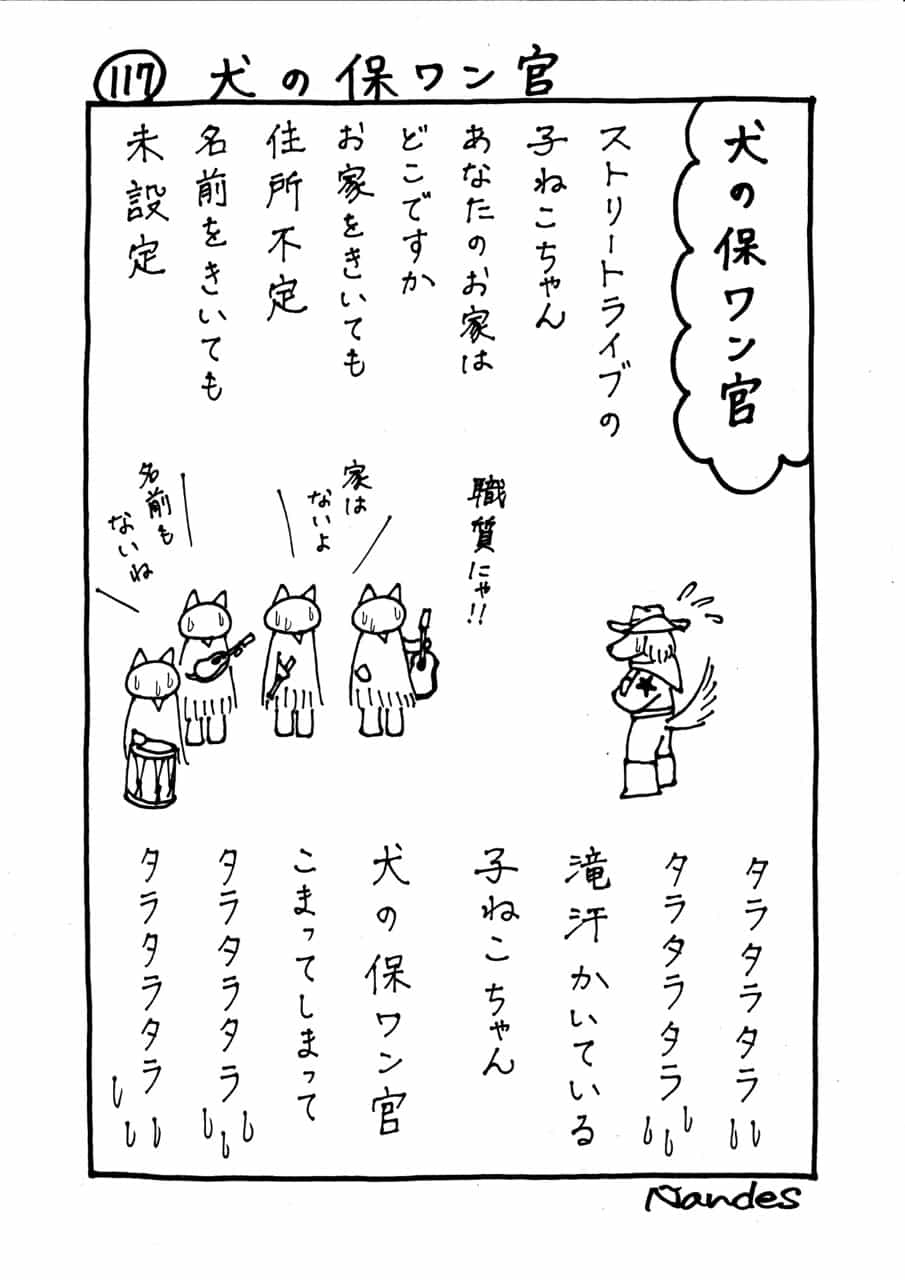 117 犬の保ワン官
犬の保ワン官
ストリートライブの
子ねこちゃん
あなたのお家は
どこですか
お家をきいても
住所不定
名前をきいても
未設定
職質にゃ!!
家は
ないよ
名前も
ないね
タラタラタラ
タラタラタラ
滝汗かいている
子ねこちゃん
犬の保ワン官
こまってしまって
タラタラタラ
タラタラタラ
Nandes